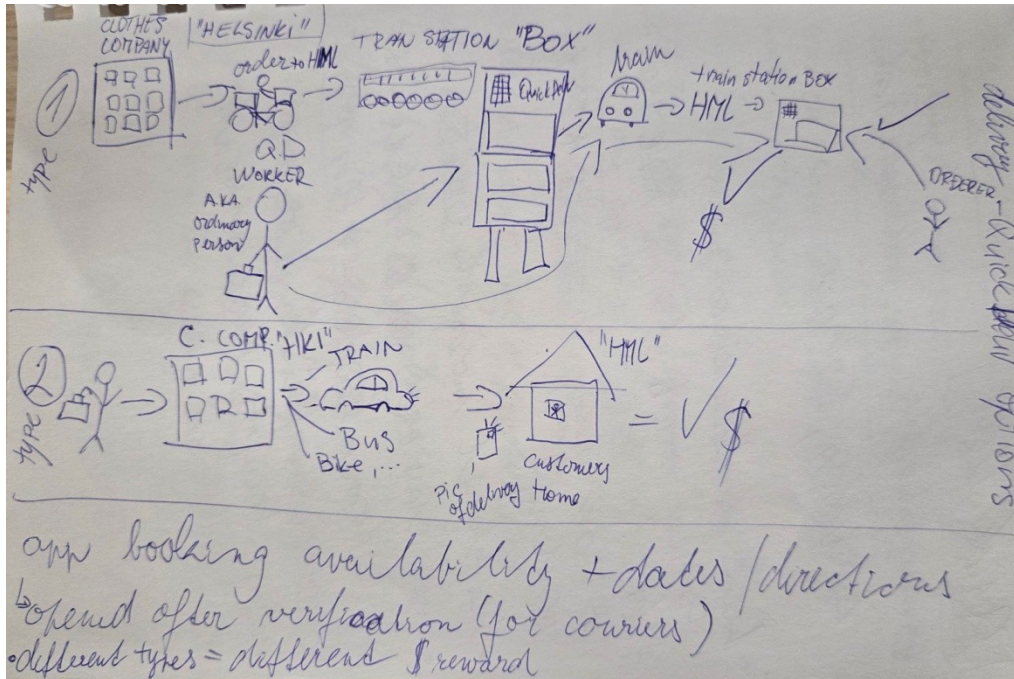 CLOTHES
COMPANY
"HELSINKI"
order to HML
TRAN STATION "BOX"
train
train station BOX
HML
type 1
Q.D.
WORKER
A.K.A.
ordinary
person
$
ORDERER
delivery - Quick options
C. COMP. "HKI"
TRAIN
"HML"
type 2
Bus
Bike, ...
= $
Pic
of delivery
customers
Home
app booking availability + dates / directions
opened after verification (for couriers)
• different types = different $ reward